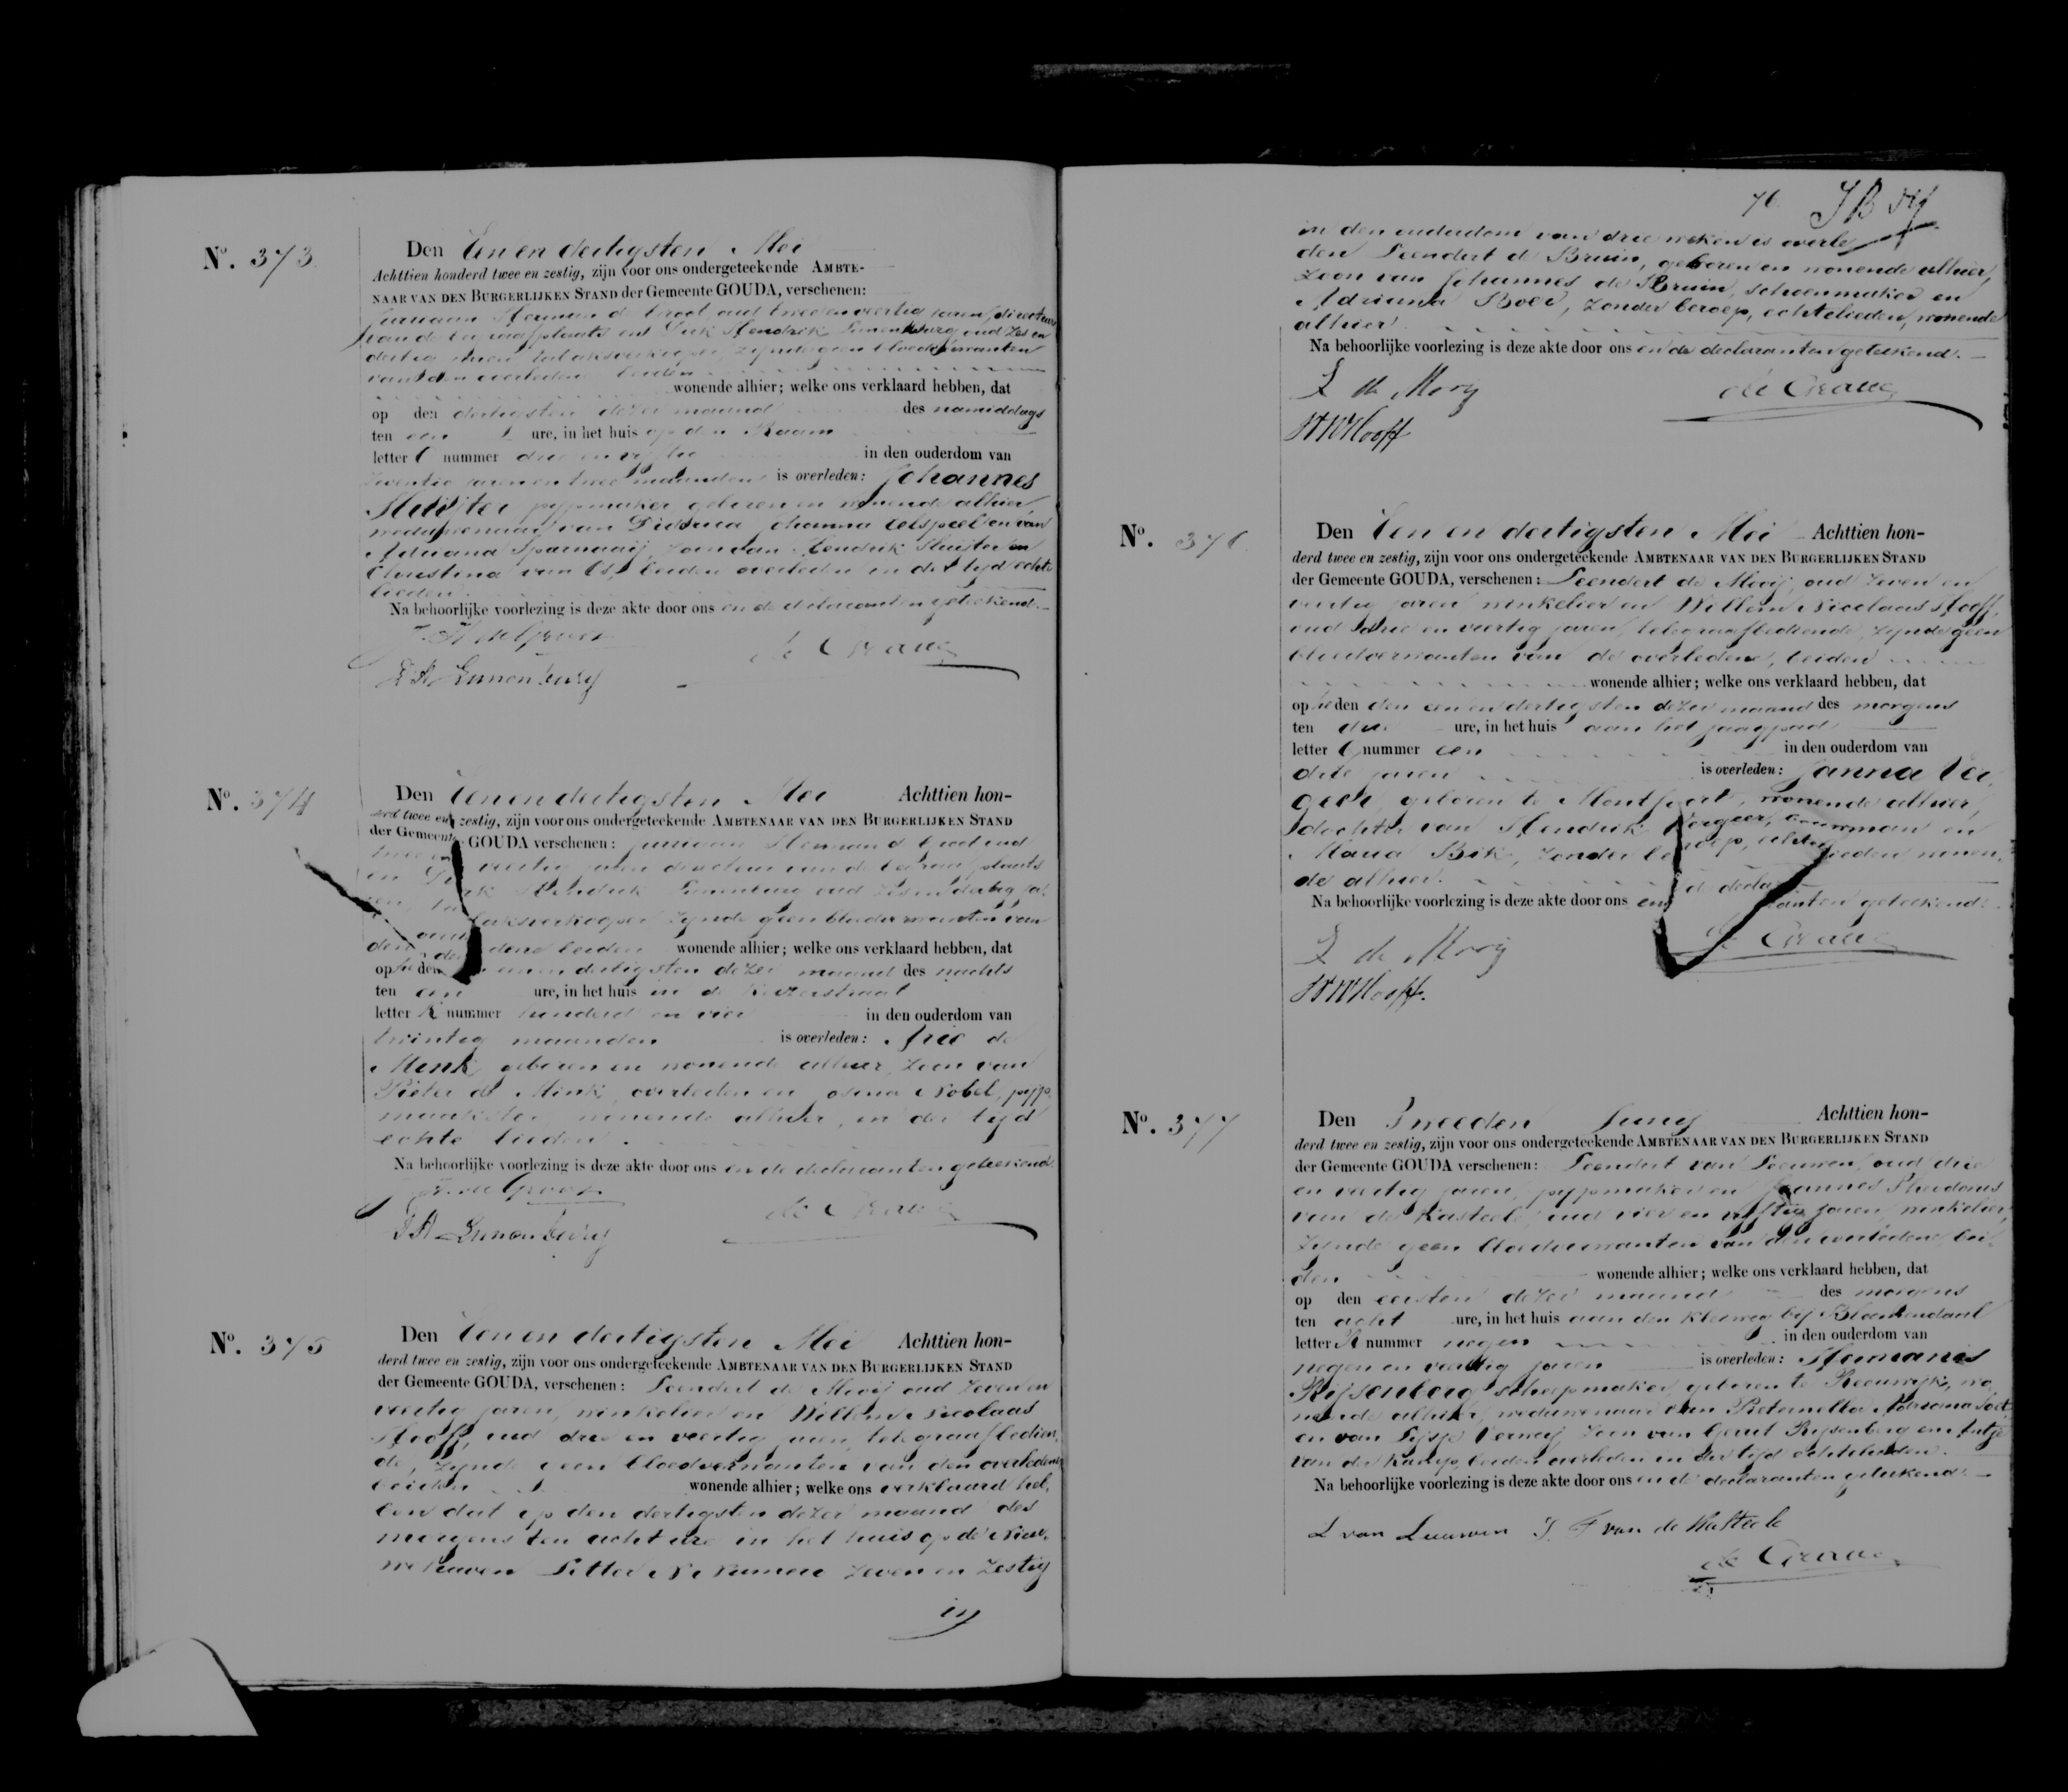 Nº. 373.
Den Een en dertigsten Mei
Achttien honderd twee en zestig, zijn voor ons ondergeteekende AMBTE-
NAAR VAN DEN BURGERLIJKEN STAND der Gemeente GOUDA, verschenen:
Jurriaan Herman de Groot, oud twee en veertig jaren, directeur
van de begraafplaats en Dirk Hendrik Lunenburg oud zes en
dertig jaren tabaksverkooper, zynde geen bloedverwanten
van den overledene beiden
wonende alhier; welke ons verklaard hebben, dat
op den dertigsten dezer maand des namiddags
ten een ure, in het huis op den Raam
letter O nummer drie en vijftig in den ouderdom van
jaren en twee maanden is overleden: Johannes
Sluijter pypmaker geboren en wonende alhier,
weduwenaar van Johanna en van
Adriana Sparnaaij zoon van Hendrik Sluijter en
Christina van Es, beiden overleden in der tyd echte
lieden.
Na behoorlijke voorlezing is deze akte door ons en de declaranten geteekend.
J. H. de Groot
D H Lunenburg
de Graaf
Nº. 374
Den Een en dertigsten Mei Achttien hon-
derd twee en zestig, zijn voor ons ondergeteekende AMBTENAAR VAN DEN BURGERLIJKEN STAND
der Gemeente GOUDA verschenen: Jurriaan Herman de Groot oud
twee en veertig jaren directeur van de begraafplaats
en Dirk Hendrik Lunenburg oud zes en dertig ja
ren, tabaksverkooper zynde geen bloedverwanten van
den overledene beiden wonende alhier; welke ons verklaard hebben, dat
op heden den een en dertigsten dezer maand des nachts
ten een ure, in het huis in de Keizerstraat
letter K nummer honderd en vier in den ouderdom van
twintig maanden is overleden: Arie de
Mink, geboren en wonende alhier, zoon van
Pieter de Mink, overleden en Josina Nobel, pyp
maakster, wonende alhier, in der tyd
echte lieden.
Na behoorlijke voorlezing is deze akte door ons en de declaranten geteekend.
J. H. de Groot
D H Lunenburg
de Graaf
Nº. 375
Den Een en dertigsten Mei Achttien hon-
derd twee en zestig, zijn voor ons ondergeteekende AMBTENAAR VAN DEN BURGERLIJKEN STAND
der Gemeente GOUDA, verschenen: Leendert de Mooij oud zeven en
veertig jaren, winkelier en Willem Nicolaas
Hooff, oud drie en veertig jaren, telegraafbedien,
de, zynde geen bloedverwanten van den overledene
beiden wonende alhier; welke ons verklaard heb,
ben dat op den dertigsten dezer maand des
morgens ten acht ure in het huis op de Nieu,
we haven Letter N Nummer zeven en zestig
in
76.
in den ouderdom van drie weken is overle
den Leendert de Bruin, geboren en wonende alhier,
zoon van Johannes de Bruin, schoenmaker en
Adriana Boer, zonder beroep, echtelieden, wonende
alhier.
Na behoorlijke voorlezing is deze akte door ons en de declaranten geteekend.
L de Mooij
de Graaf
W N Hooff
Nº. 376.
Den Een en dertigsten Mei Achttien hon-
derd twee en zestig, zijn voor ons ondergeteekende AMBTENAAR VAN DEN BURGERLIJKEN STAND
der Gemeente GOUDA, verschenen: Leendert de Mooij, oud zeven en
veertig jaren winkelier en Willem Nicolaas Hooff,
oud drie en veertig jaren, telegraafbediende, zynde geen
bloedverwanten van de overledene, beiden
wonende alhier; welke ons verklaard hebben, dat
op heden den een en dertigsten dezer maand des morgens
ten drie ure, in het huis aan het jaagpad
letter O nummer een in den ouderdom van
drie jaren is overleden: Janna Ver,
geer, geboren te Montfoort, wonende alhier,
dochter van Hendrik Vergeer, bouwman en
Maria Bik, zonder beroep, echte lieden wonen,
de alhier.
Na behoorlijke voorlezing is deze akte door ons en de declaranten geteekend.
L de Mooij
de Graaf
W N Hooff.
Nº. 377
Den Tweeden Juny Achttien hon-
derd twee en zestig, zijn voor ons ondergeteekende AMBTENAAR VAN DEN BURGERLIJKEN STAND
der Gemeente GOUDA verschenen: Leendert van Leeuwen, oud drie
en veertig jaren, pypmaker en Joannes
van de Kasteele, oud vier en vyftig jaren, winkelier,
zynde geen bloedverwanten van den overledene, bei,
den wonende alhier; welke ons verklaard hebben, dat
op den eersten dezer maand des morgens
ten acht ure, in het huis aan den Kleiweg by Bloemendaal
letter R nummer negen in den ouderdom van
negen en veertig jaren is overleden: Hermanus
Rijsenberg scheepmaker, geboren te Reeuwijk, wo,
nende alhier, weduwenaar van Pieternella Adriana
en van Lijsje Verney zoon van Gerrit Rijsenberg en Antje
van der beiden overleden in der tijd echtelieden.
Na behoorlijke voorlezing is deze akte door ons en de declaranten geteekend.
L van Leeuwen J. T van de Kasteele
de Graaf